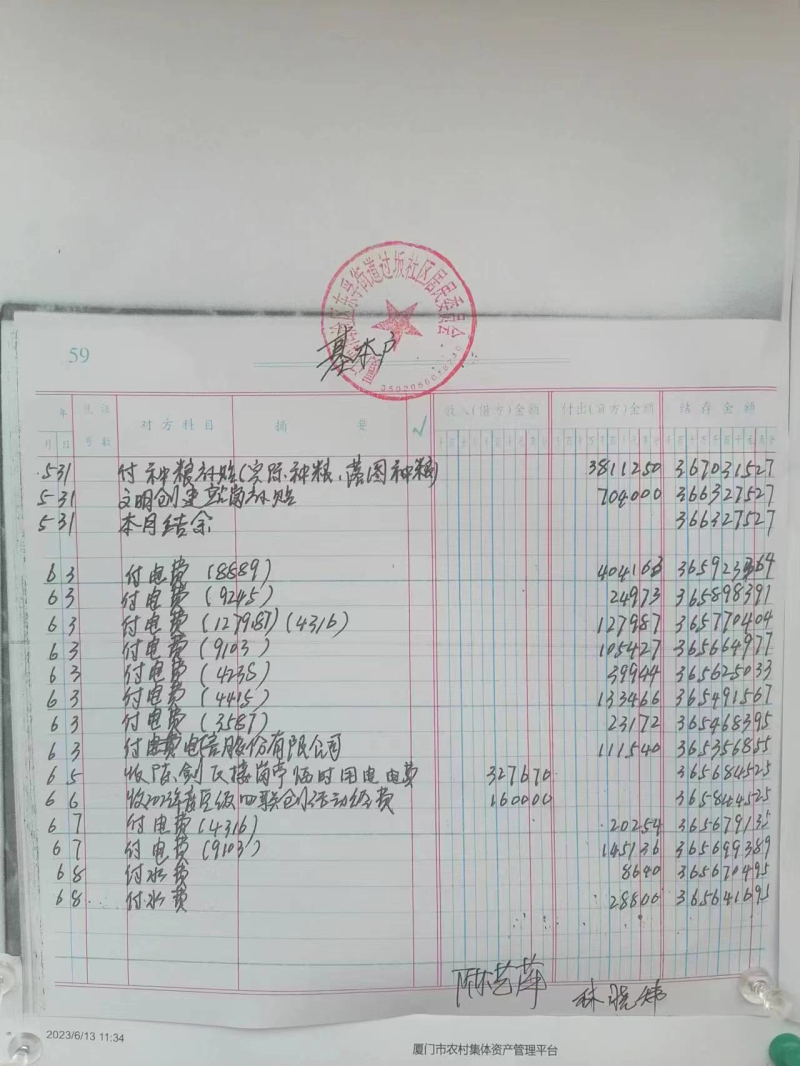 东孚街道过坂社区居民委员会
基本户
59
年 凭证 对方科目 摘要 √ 收入(借方)金额 付出(贷方)金额 结存金额
月 日 号数
5 31 付种粮补贴(实际种粮、落图种粮) 3811250 367031527
5 31 文明创建站岗补贴 704000 366327527
5 31 本月结余 366327527
6 3 付电费(8589) 404163 365923364
6 3 付电费(9245) 24973 365898391
6 3 付电费(127987)(4316) 127987 365770404
6 3 付电费(9103) 105427 365664977
6 3 付电费(4238) 39944 365625033
6 3 付电费(4415) 133466 365491567
6 3 付电费(3587) 23172 365468395
6 3 付电费电信股份有限公司 111540 365356855
6 5 327670 365684525
6 6 160000 365844525
6 7 付电费(4316) 20254
6 7 付电费(9103) 145136 365699389
6 8 付水费 8640
6 8 付水费 28800 365641695
陈艺萍 林晓伟
2023/6/13 11:34
厦门市农村集体资产管理平台